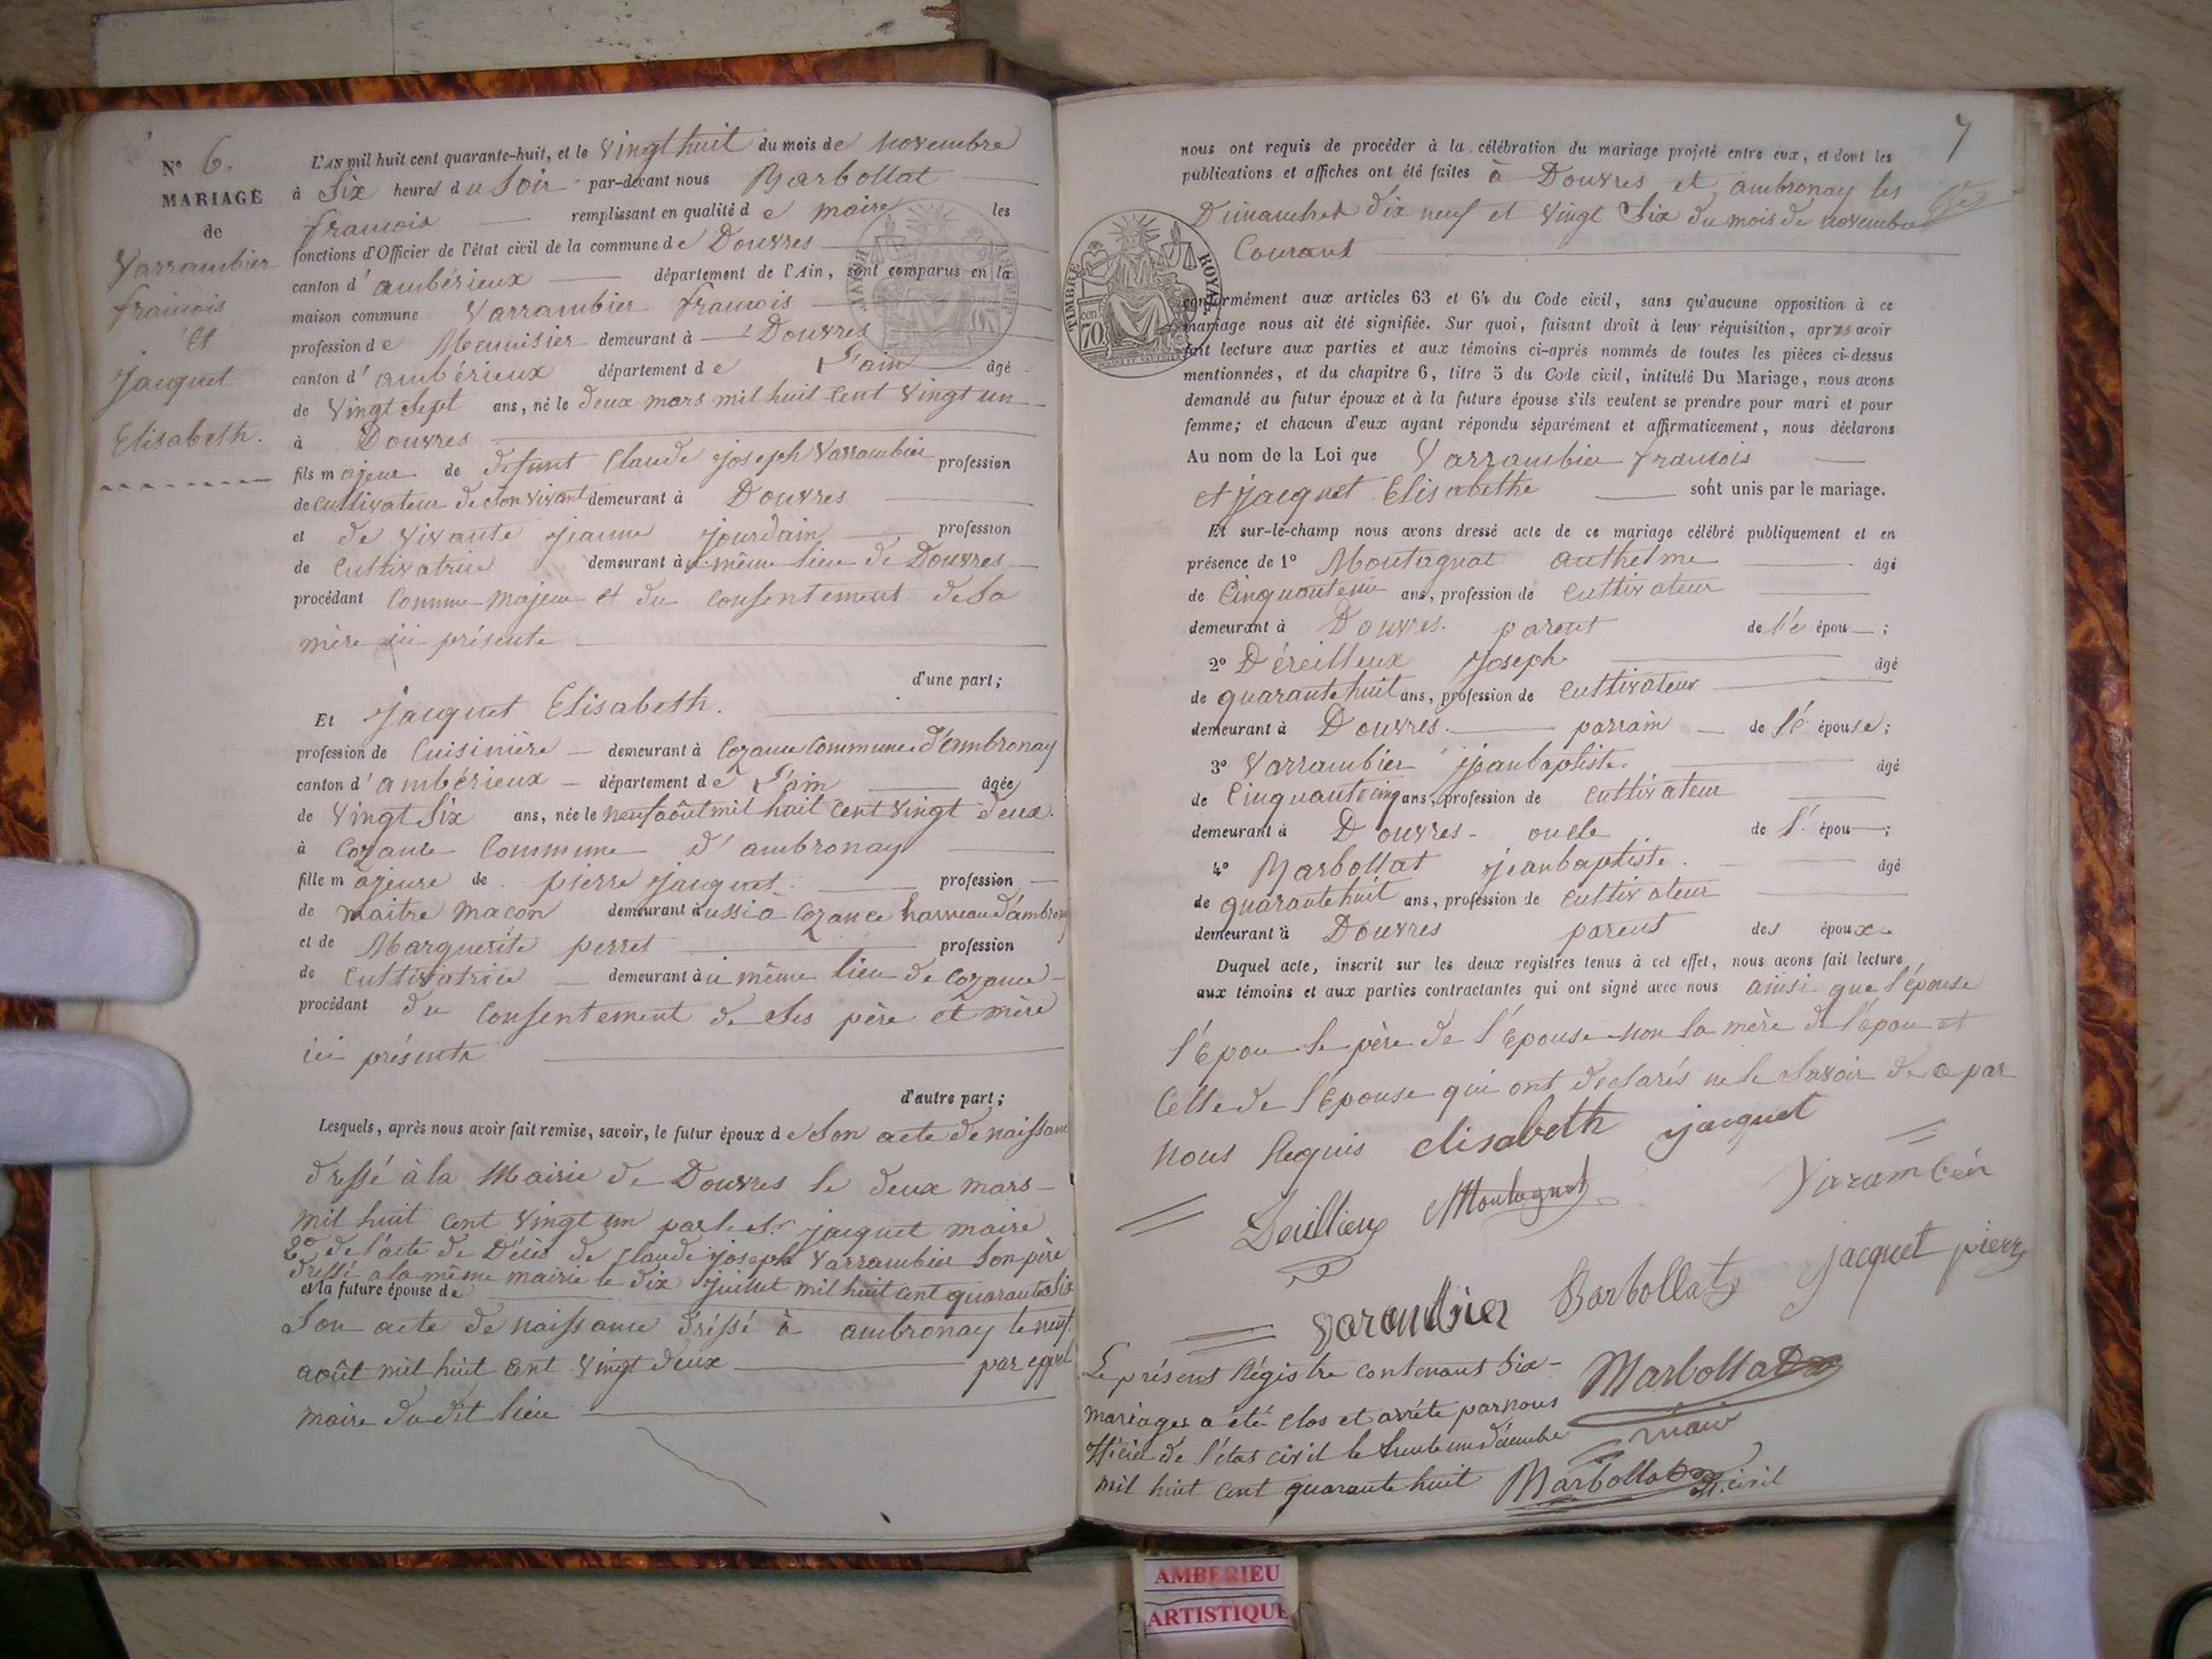 N° 6.
MARIAGE
de
Varrambier
francois
et
Jacquet
Elisabeth.
L'AN mil huit cent quarante-huit, et le vingt huit du mois de novembre
à Six heures du Soir par-devant nous Marbollat
francois remplissant en qualité de maire les
fonctions d'Officier de l'état civil de la commune de Douvres
canton d'ambérieux département de l'Ain, sont comparus en la
maison commune Varrambier francois
profession de Menuisier demeurant à Douvres
canton d'ambérieux département de L'ain âgé
de vingt Sept ans, né le deux mars mil huit Cent vingt un
à Douvres
fils majeur de defunt Claude joseph Varrambier profession
de Cultivateur de Son vivant demeurant à Douvres
et de vivante jeanne jourdain profession
de Cultivatrice demeurant à même lieu de Douvres
procédant Comme majeur et du Consentement de Sa
mère ici présente
d'une part;
Et Jacquet Elisabeth.
profession de Cuisinière demeurant à Cozance Commune d'ambronay
canton d'ambérieux département de L'ain âgée
de vingt Six ans, née le neuf août mil huit Cent vingt deux.
à Cozance Commune d'ambronay
fille majeure de pierre Jacquet profession
de maitre maçon demeurant aussi à Cozance hameau d'ambronay
et de Marguerite perret profession
de Cultivatrice demeurant à même lieu de Cozance
procédant du Consentement de Ses père et mère
ici présents
d'autre part;
Lesquels, après nous avoir fait remise, savoir, le futur époux de Son acte de naissance
dressé à la Mairie de Douvres le deux mars
mil huit Cent vingt un par le Sr jacquet maire
2° de l'acte de Décès de Claude joseph Varrambier Son père
dressé a la même mairie le dix juillet mil huit Cent quarante Six
et la future épouse de
Son acte de naissance dréssé à ambronay le neuf
août mil huit Cent vingt deux par
maire du dit lieu
7
nous ont requis de procéder à la célébration du mariage projeté entre eux, et dont les
publications et affiches ont été faites à Douvres et ambronay les
Dimanches dix neuf et vingt Six du mois de novembre
Courant
TIMBRE ROYAL
70
conformément aux articles 63 et 64 du Code civil, sans qu'aucune opposition à ce
mariage nous ait été signifiée. Sur quoi, faisant droit à leur réquisition, après avoir
fait lecture aux parties et aux témoins ci-après nommés de toutes les pièces ci-dessus
mentionnées, et du chapitre 6, titre 5 du Code civil, intitulé Du Mariage, nous avons
demandé au futur époux et à la future épouse s'ils veulent se prendre pour mari et pour
femme; et chacun d'eux ayant répondu séparément et affirmativement, nous déclarons
Au nom de la Loi que Varrambier francois
et jacquet Elisabethe sont unis par le mariage.
Et sur-le-champ nous avons dressé acte de ce mariage célébré publiquement et en
présence de 1° Montagnat anthelme âgé
de Cinquante ans, profession de Cultivateur
demeurant à Douvres. parent de l'é épou ;
2° Déreilleux Joseph âgé
de quarante huit ans, profession de Cultivateur
demeurant à Douvres. parrain de l'é épouse;
3° Varrambier jeanbaptiste. âgé
de Cinquante cinq ans, profession de Cultivateur
demeurant à Douvres oncle de l' épou ;
4° Marbollat jeanbaptiste. âgé
de quarante huit ans, profession de Cultivateur
demeurant à Douvres parent des époux
Duquel acte, inscrit sur les deux registres tenus à cet effet, nous avons fait lecture
aux témoins et aux parties contractantes qui ont signé avec nous ainsi que l'épouse
l'épou le père de l'épouse non la mère de l'épou et
Celle de l'épouse qui ont declarés ne le Savoir de a par
nous Requis elisabeth jacquet
Montagnat Varambier
Varambier Barbollat Jacquet pierre
Le présent Régistre contenant Six
mariages a été clos et arrété par nous Marbollat
officier de l'état civil le trente un décembre maire
mil huit Cent quarante huit Marbollat civil
AMBERIEU
ARTISTIQUE